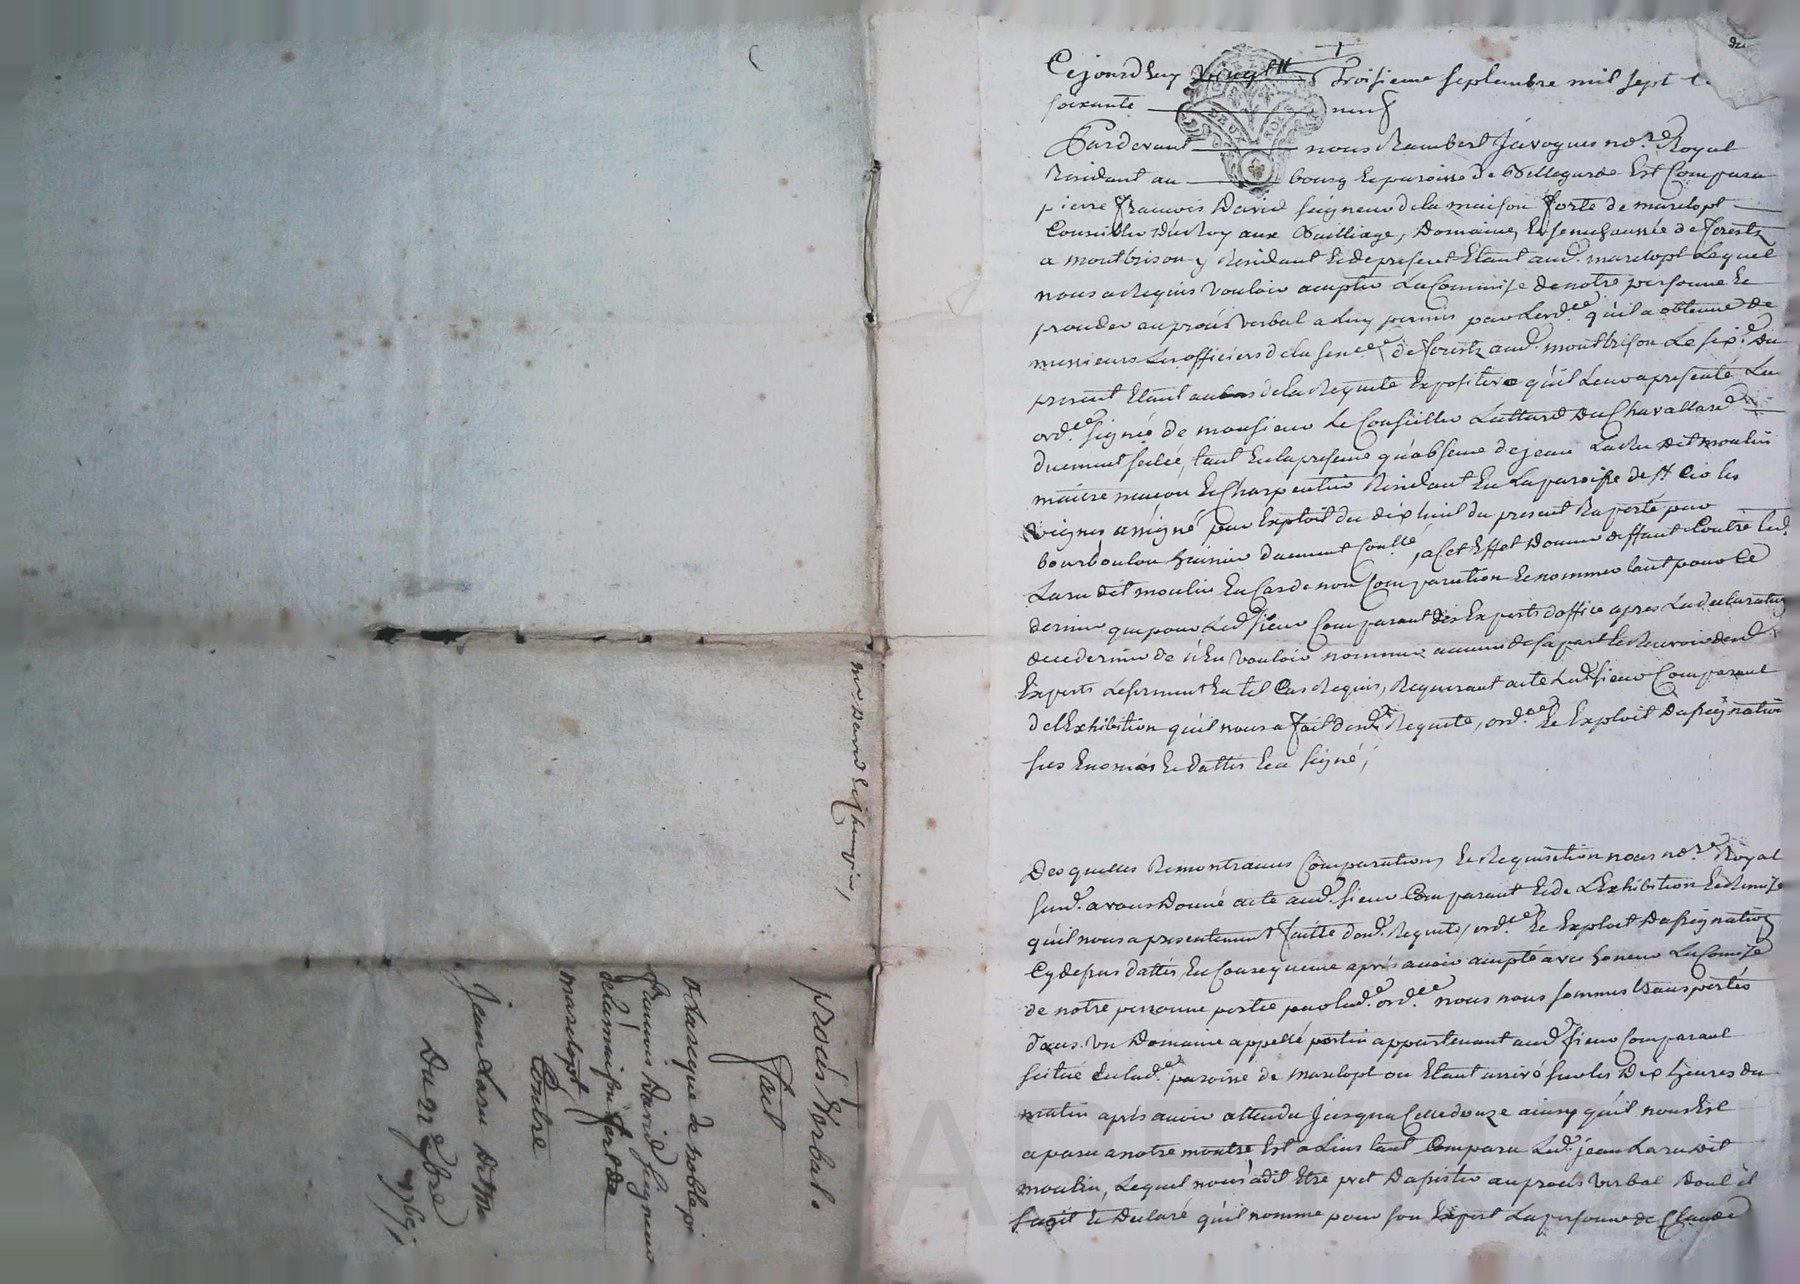 mre David Echungin,
procés Verbal
fait
a la reque de noble pi
francois David Seigneur
de la maison fort de
marclopt
Contre
Jean Laru dit M
Du 23 7bre 1769
Cejourdhuy vingtt Troisieme septembre mil sept
soixante neuf
Pardevant nous Rambert Javogues nore Royal
Residant au bourg Et paroisse de Bellegarde Est Comparu
pierre francois David seigneur de la maison forte de marclopt
Conseiller du Roy aux Bailliage, Domaine, Et senechaussée de forestz
a montbrison y Residant Et de present Etant aud. marclopt Lequel
nous a Requis vouloir accepter La Commise de notre personne Et
proceder au procés verbal a Luy permis par Lordce qu'il a obtenue de
messieurs Les officiers de la sencee de forestz aud. montbrison Le sixe Du
present Etant au bas de la Requete Expositive qu'il Leur a presenté La
ordce signée de monsieur Le Conseiller Lattard Du Chavallard
duement scelée, tant En la presence qu'absence de jean Laru dit moulin
maitre macon Et Charpentier Residant En La paroisse de st Cir les
vignes assigné par Exploit du dix huit du present Raporté par
bourboulon huissier duement Conllé, a Cet Effet Donner deffaut Contre Led.
Laru dit moulin En Cas de non Comparution Et nommer tant pour Ce
dernier que pour Led. sieur Comparant des Experts d'office apres La declaration
de ce dernier de n'En vouloir nommer aucun de sa part Et Recevoir desd.
Experts Le serment En tel Cas Requis, Requerant acte Led. sieur Comparant
de l'Exhibition qu'il nous a fait desd. Requete, ordce Et Exploit D'assignation
sus Enoncés Et dattés Et a signé,
Desquelles Remontrances Comparution, Et Requisition nous nore Royal
susd. avons Donné acte aud. sieur Comparant Et de L'Exhibition Et Remise
qu'il nous a presentement faitte desd. Requete, ordce Et Exploit D'assignation
Cy dessus dattés, En Consequence aprés avoir accepté avec honneur La Commise
de notre personne portée par lad. ordce nous nous sommes transportés
dans un Domaine appellé portin appartenant aud. sieur Comparant
scitué En lad. paroisse de marclopt ou Etant arrivé sur les Dix heures du
matin aprés avoir attendu jusqua Celle d'onze ainsy qu'il nous Est
aparu a notre montre Est a L'instant Comparu Led. jean Laru dit
moulin, Lequel nous a dit Etre pret D'assister au procés verbal Dont il
s'agit Et Declaré qu'il nomme pour son Expert La personne de Claude